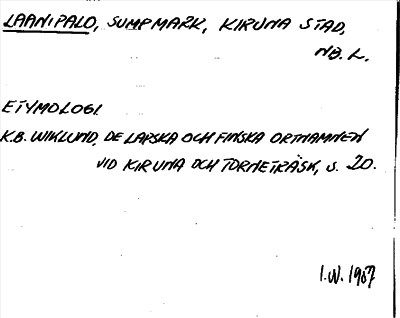 LAANIPALO, SUMPMARK, KIRUNA STAD,
NB. L.
ETYMOLOGI.
K.B. WIKLUND, DE LAPSKA OCH FINSKA ORTNAMNEN
VID KIRUNA OCH TORNETRÄSK, S. 20.
I.W. 1967